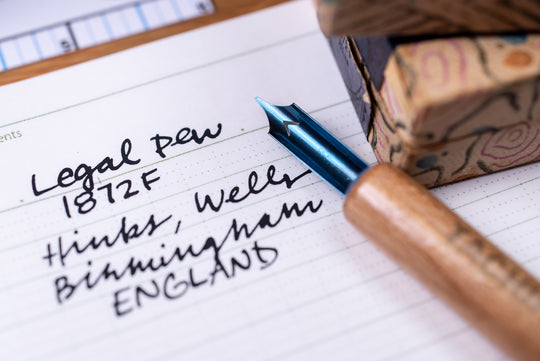 ents
Legal Pen
1872F
Hinks, Wells
Birmingham
ENGLAND